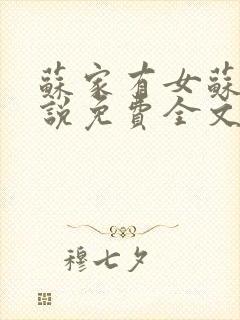 蘇家有女蘇
說免費全文
穆七夕